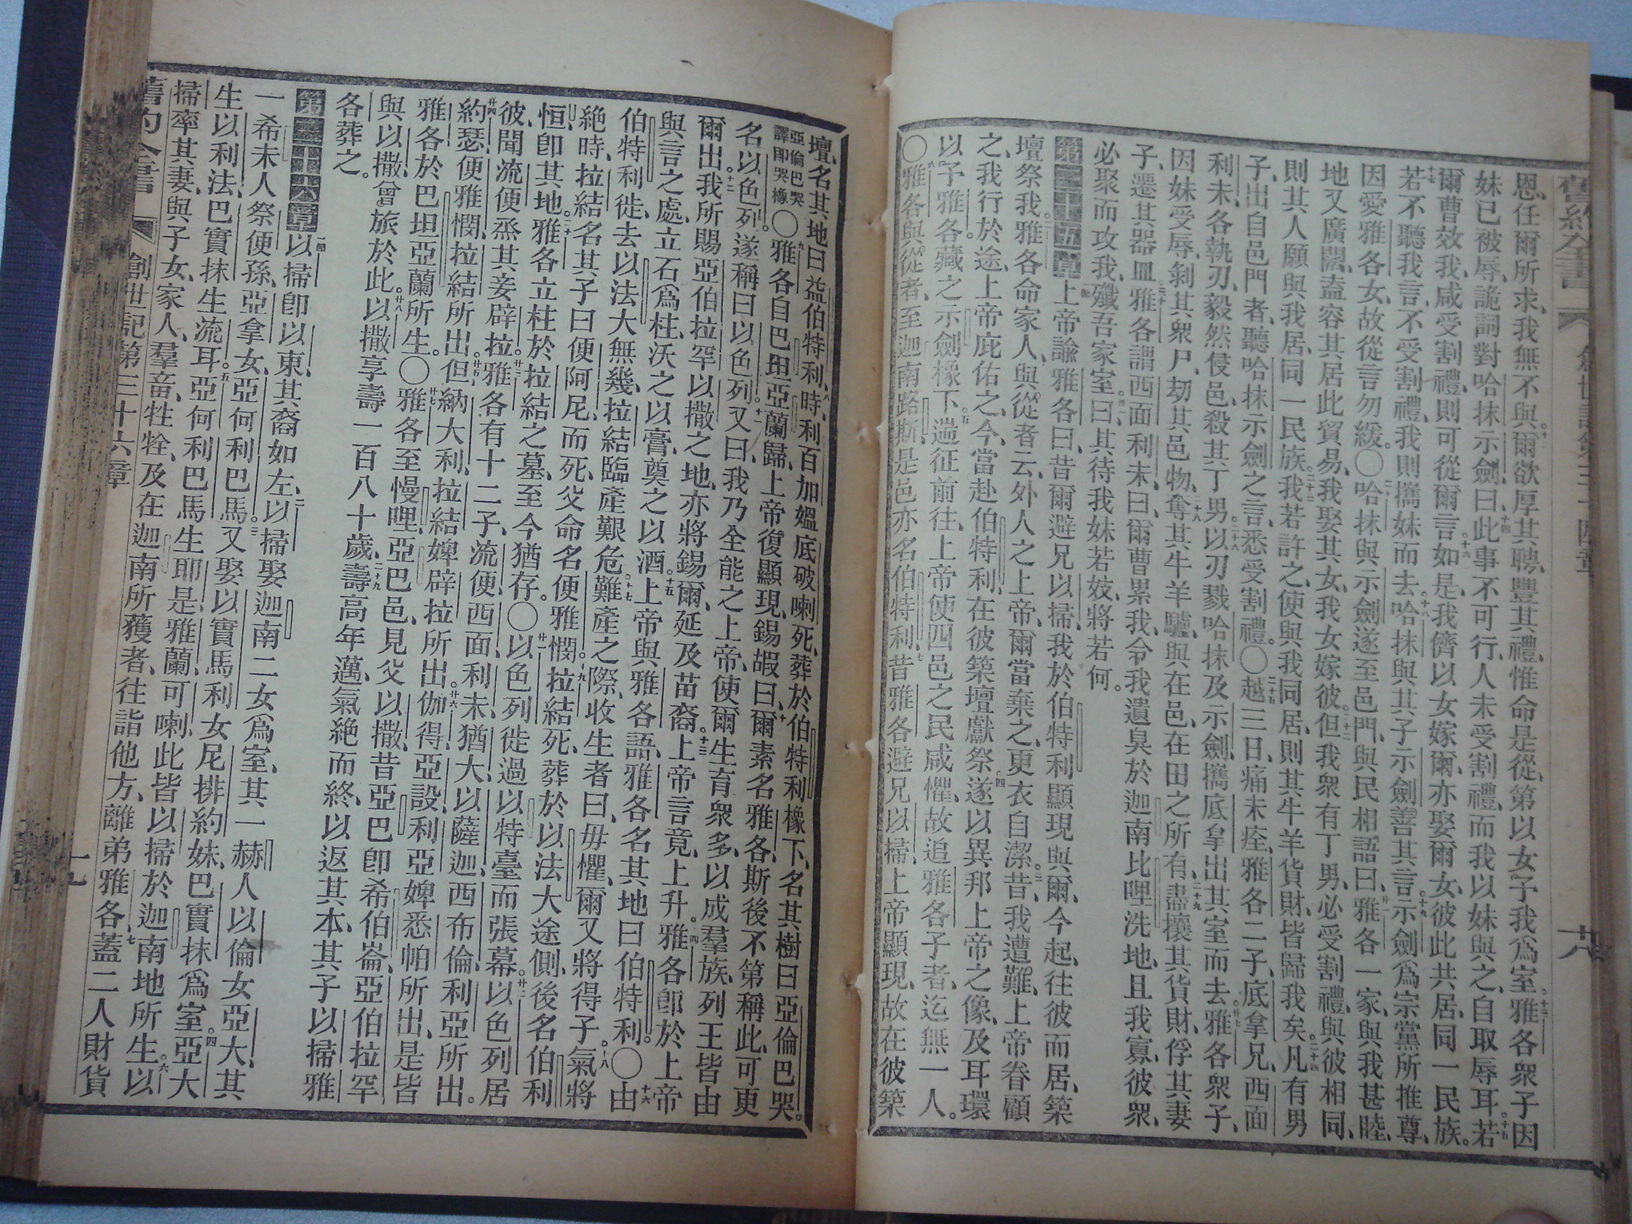 舊約全書
創世記第三十四章
廿八
恩、任爾所求、我無不與、爾欲厚其聘、豐其禮、惟命是從、第以女子我爲室、雅各衆子因
妹已被辱、詭詞對哈抹示劍曰、此事不可行、人未受割禮、而我以妹與之、自取辱耳、若
爾曹效我、咸受割禮、則可從爾言、如是、我儕以女嫁爾、亦娶爾女、彼此共居、同一民族。
若不聽我言、不受割禮、我則攜妹而去、哈抹與其子示劍、善其言、示劍爲宗黨所推尊、
因愛雅各女、故從言勿緩。〇哈抹與示劍遂至邑門、與民相語曰、雅各一家、與我甚睦、
地又廣闊、盍容其居此貿易、我娶其女、我女嫁彼、但我衆有丁男、必受割禮、與彼相同、
則其人願與我居、同一民族、我若許之、使與我同居、則其牛羊貨財、皆歸我矣、凡有男
子、出自邑門者、聽哈抹示劍之言、悉受割禮。〇越三日、痛未痊、雅各二子、底拿兄、西面
利未、各執刃、毅然侵邑、殺其丁男、以刃戮哈抹及示劍、攜底拿出其室而去、雅各衆子、
因妹受辱、剝其衆尸、刧其邑物、奪其牛羊驢、與在邑、在田之所有、盡攘其貨財、俘其妻
子、遷其器皿、雅各謂西面利未曰、爾曹累我、令我遺臭於迦南比哩洗地、且我寡、彼衆、
必聚而攻我、殲吾家室、曰、其待我妹若妓、將若何。
第三十五章 上帝諭雅各曰、昔爾避兄以掃、我於伯特利顯現與爾、今起、往彼而居、築
壇祭我、雅各命家人、與從者云、外人之上帝、爾當棄之、更衣自潔、昔我遭難、上帝眷顧
之、我行於途、上帝庇佑之、今當赴伯特利、在彼築壇獻祭、遂以異邦上帝之像、及耳環
以予雅各、藏之示劍橡下、遄征前往、上帝使四邑之民咸懼、故追雅各子者、迄無一人。
〇雅各與從者、至迦南路斯、是邑亦名伯特利、昔雅各避兄以掃、上帝顯現、故在彼築
壇、名其地曰益伯特利、時、利百加媼底破喇死、葬於伯特利橡下、名其樹曰亞倫巴哭。
亞倫巴哭譯卽哭橡〇雅各自巴坦亞蘭歸、上帝復顯現、錫嘏曰、爾素名雅各、斯後不第稱此、可更
名以色列、遂稱曰以色列、又曰、我乃全能之上帝、使爾生育衆多、以成羣族、列王皆由
爾出、我所賜亞伯拉罕以撒之地、亦將錫爾、延及苗裔、上帝言竟、上升、雅各卽於上帝
與言之處、立石爲柱、沃之以膏、奠之以酒、上帝與雅各語、雅各名其地曰伯特利。〇由
伯特利徙、去以法大無幾、拉結臨產艱危、難產之際、收生者曰、毋懼、爾又將得子、氣將
絕時、拉結名其子曰便阿尼、而死、父命名便雅憫、拉結死、葬於以法大途側、後名伯利
恒、卽其地、雅各立柱於拉結之墓、至今猶存。〇以色列徙、過以特臺而張幕、以色列居
彼、聞流便烝其妾辟拉、雅各有十二子、流便、西面、利未、猶大、以薩迦、西布倫、利亞所出。
約瑟、便雅憫、拉結所出、但、納大利、拉結婢辟拉所出、伽得、亞設、利亞婢悉帕所出、是皆
雅各於巴坦亞蘭所生。〇雅各至慢哩、亞巴邑、見父以撒、昔亞巴卽希伯崙、亞伯拉罕
與以撒曾旅於此、以撒享壽一百八十歲、壽高年邁、氣絕而終、以返其本、其子以掃雅
各葬之。
第三十六章 以掃卽以東、其裔如左、以掃娶迦南二女爲室、其一赫人以倫女亞大、其
一希未人祭便孫、亞拿女、亞何利巴馬、又娶以實馬利女、尼排約妹、巴實抹爲室、亞大
生以利法、巴實抹生流耳、亞何利巴馬生耶是、雅蘭、可喇、此皆以掃於迦南地所生、以
掃率其妻、與子女、家人、羣畜、牲牷、及在迦南所獲者、往詣他方、離弟雅各、蓋二人財貨
舊約全書
創世記第三十六章
十九